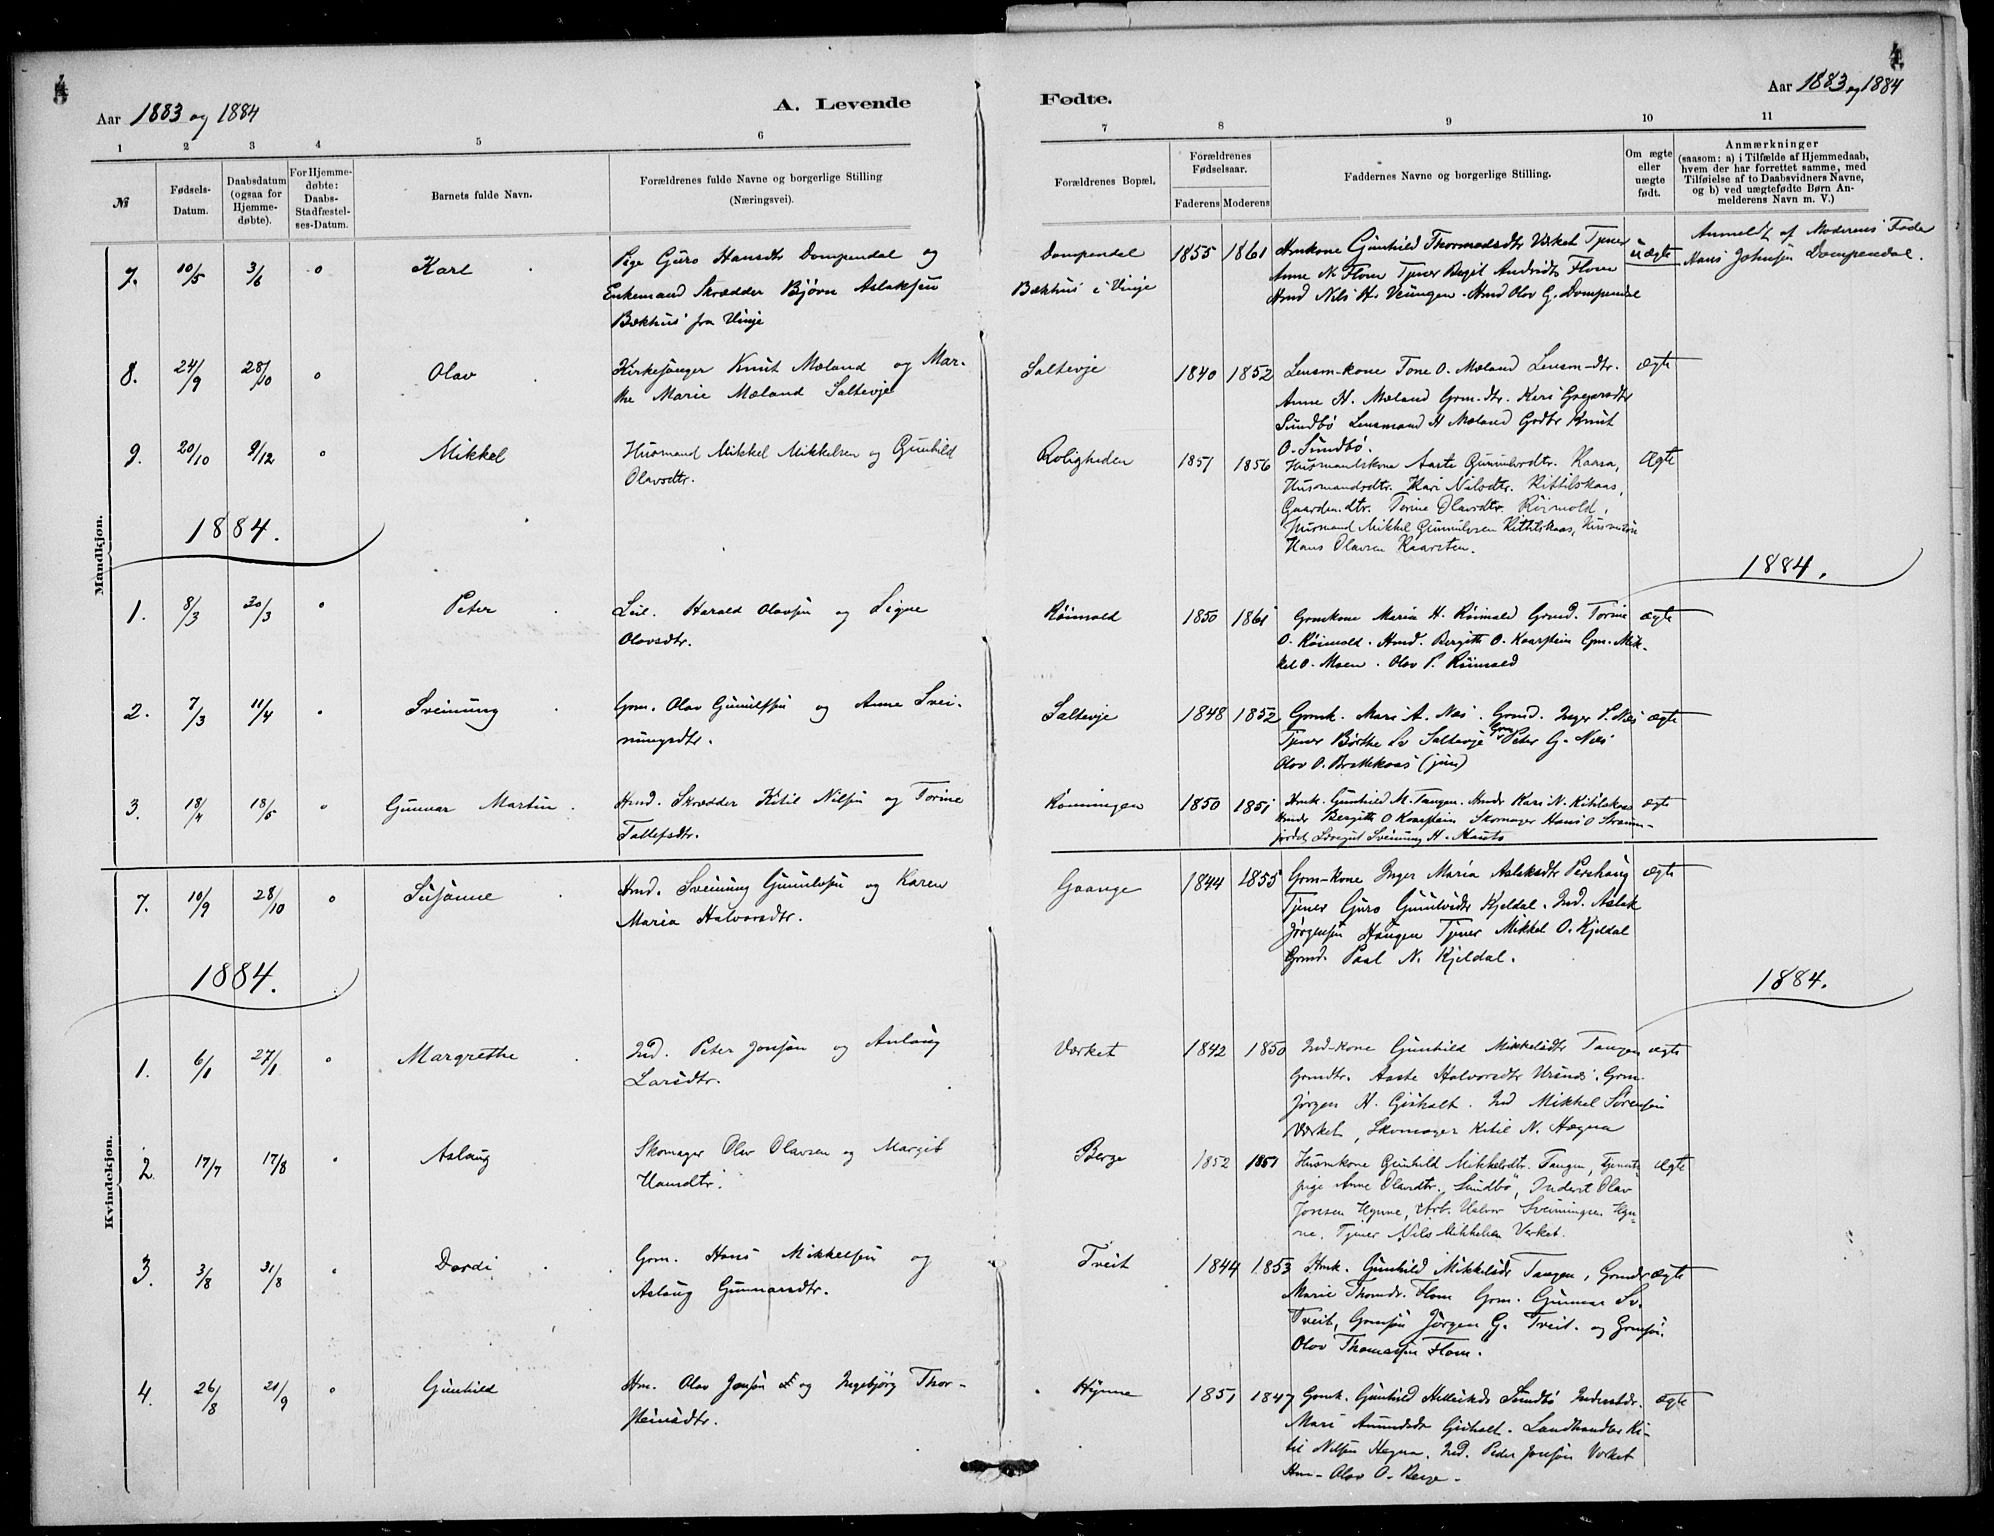 4
4
Aar 1883 og 1884
A. Levende
Fødte.
Aar 1883 og 1884
1 2 3 4 5 6
7 8 9 10 11
№
Fødsels-
Datum.
Daabsdatum
(ogsaa for
Hjemme-
døbte).
For Hjemme-
døbte:
Daabs-
Stadfæstel-
ses-Datum.
Barnets fulde Navn.
Forældrenes fulde Navne og borgerlige Stilling
(Næringsvei).
Forældrenes Bopæl.
Forældrenes
Fødselsaar.
Faderens Moderens
Faddernes Navne og borgerlige Stilling.
Om ægte
eller
uægte
født.
Anmærkninger
(saasom: a) i Tilfælde af Hjemmedaab,
hvem der har forrettet samme, med
Tilføielse af to Daabsvidners Navne,
og b) ved uægtefødte Børn An-
melderens Navn m. V.)
Mandkjøn.
7. 10/5 3/6 o Karl
Pige Guro Hansdtr Dompendal og
Enkemand Skrædder Bjørn Aslaksen
Bækhus fra Vinje
Dompendal
Bækhus i Vinje
1855 1861
Hmkone Gunhild Thormodsdtr Værket Tjener
Anne N. Flom Tjener Bergit Andridtr Flom
Hmd Nils H. Veungen. Hmd Olov G. Dompendal
uægte
Anmeldt af Moderens Fader
Hans Johnsen Dompendal.
8. 24/9 28/10 o Olav
Kirkesanger Knut Mæland og Mar-
the Marie Mæland Saltevje
Saltevje
1840 1852
Lensm-kone Tone O. Mæland Lensm-dtr.
Anne H. Mæland Grm.dtr. Kari Gregarsdtr
Sundbø Lensmand H Mæland Grdbr Knut
O. Sundbø.
ægte
9. 20/10 9/12 o Mikkel
Husmand Mikkel Mikkelsen og Gunhild
Olavsdtr.
Roligheden
1851 1856
Husmandskone Aaste Gunnulvsdtr. Kaasa,
Husmandsdtr. Kari Nilsdtr. Kittilskaas,
Gaardm.dtr. Torine Olavsdtr. Röimold,
Husmand Mikkel Gunnulvsen Kittilskaas, Husmands
Hans Olavsen Kaarsten.
Ægte
1884.
1884.
1. 8/3 30/3 o Peter
Leil. Harald Olavsen og Signe
Olavsdtr.
Röimold
1850 1861
Grmkone Maria H. Röimold Grmd. Torine
O. Röimold. Hmd. Bergitt O. Kaarstein Grm. Mik-
kel O. Moen. Olov P. Röimold
ægte
2. 7/3 11/4 o Sveinung
Grm. Olav Gunulfsen og Anne Svei-
nungsdtr.
Saltevje
1848 1852
Grmk. Mari A. Næs. Grmd. Inger P. Næs
Tjener Börthe Sv Saltevje Grm Peter G. Næs
Olov O. Brattekaas (jun)
ægte
3. 18/4 18/5 o Gunnar Martin
Hmd. Skrædder Kitil Nilsen og Torine
Tallefsdtr.
Rönningen
1850 1851
Hmk. Gunhild M. Tangen. Hmdr Kari N. Kitilskaas
Hmdr Bergitt O Kaarstein Skomager Hans O Straum-
fjordet Sveinung H. Hauto
ægte
Kvindekjøn.
7. 10/9 28/10 o Susanne
Hmd. Sveinung Gunulvsen og Karen
Maria Halvorsdtr.
Gaange
1844 1855
Grm-kone Inger Maria Aslaksdtr Pershaug
Tjener Guro Gunulvsdtr Kjeldal. Ind. Aslak
Jörgensen Haugen Tjener Mikkel O. Kjeldal
Grmd. Paal N. Kjeldal.
ægte
1884.
1884.
1. 6/1 27/1 o Margrethe
Ind. Peter Jonsen og Anlaug
Larsdtr.
Værket
1842 1850
Ind-kone Gunhild Mikkelsdtr Tangen
Grmdtr. Aaste Halvorsdtr Ursnes. Grm.
Jörgen H. Gisholt. Ind Mikkel Sörensen
Værket, Skomager Kitil N. Hægna
ægte
2. 17/7 17/8 o Aslaug
Skomager Olav Olavsen og Margit
Hansdtr.
Berge
1852 1851
Husmkone Gunhild Mikkelsdtr. Tangen, Tjeneste
pige Anne Olavsdtr. Sundbö, Inderst Olav
Jonsen Hynne, Arb. Halvor Sveinungsen Hyn-
ne. Tjener Nils Mikkelsen Verket.
Ægte
3. 3/8 31/8 o Dordi
Grm. Hans Mikkelsen og
Aslaug Gunnarsdtr.
Tveit
1844 1853
Hmk. Gunhild Mikkelsdtr Tangen, Grmdr
Marie Thomdr. Flom Grm. Gunnar Sv.
Tveit, Grmsøn Jörgen G. Tveit. og Grmsøn.
Olov Thomassen Flom.
ægte
4. 26/8 21/9 o Gunhild
Hm. Olav Jonsen og Ingebjørg Thor-
steinsdtr.
Hynne
1851 1847
Grmk. Gunhild Hellikdr Sundbö Inderstdr.
Mari Amundsdr Gisholt. Landhandler Ki-
til Nilsen Hægna, Ind. Peder Jonsen Værket
Hm- Olov O. Berge.
ægte